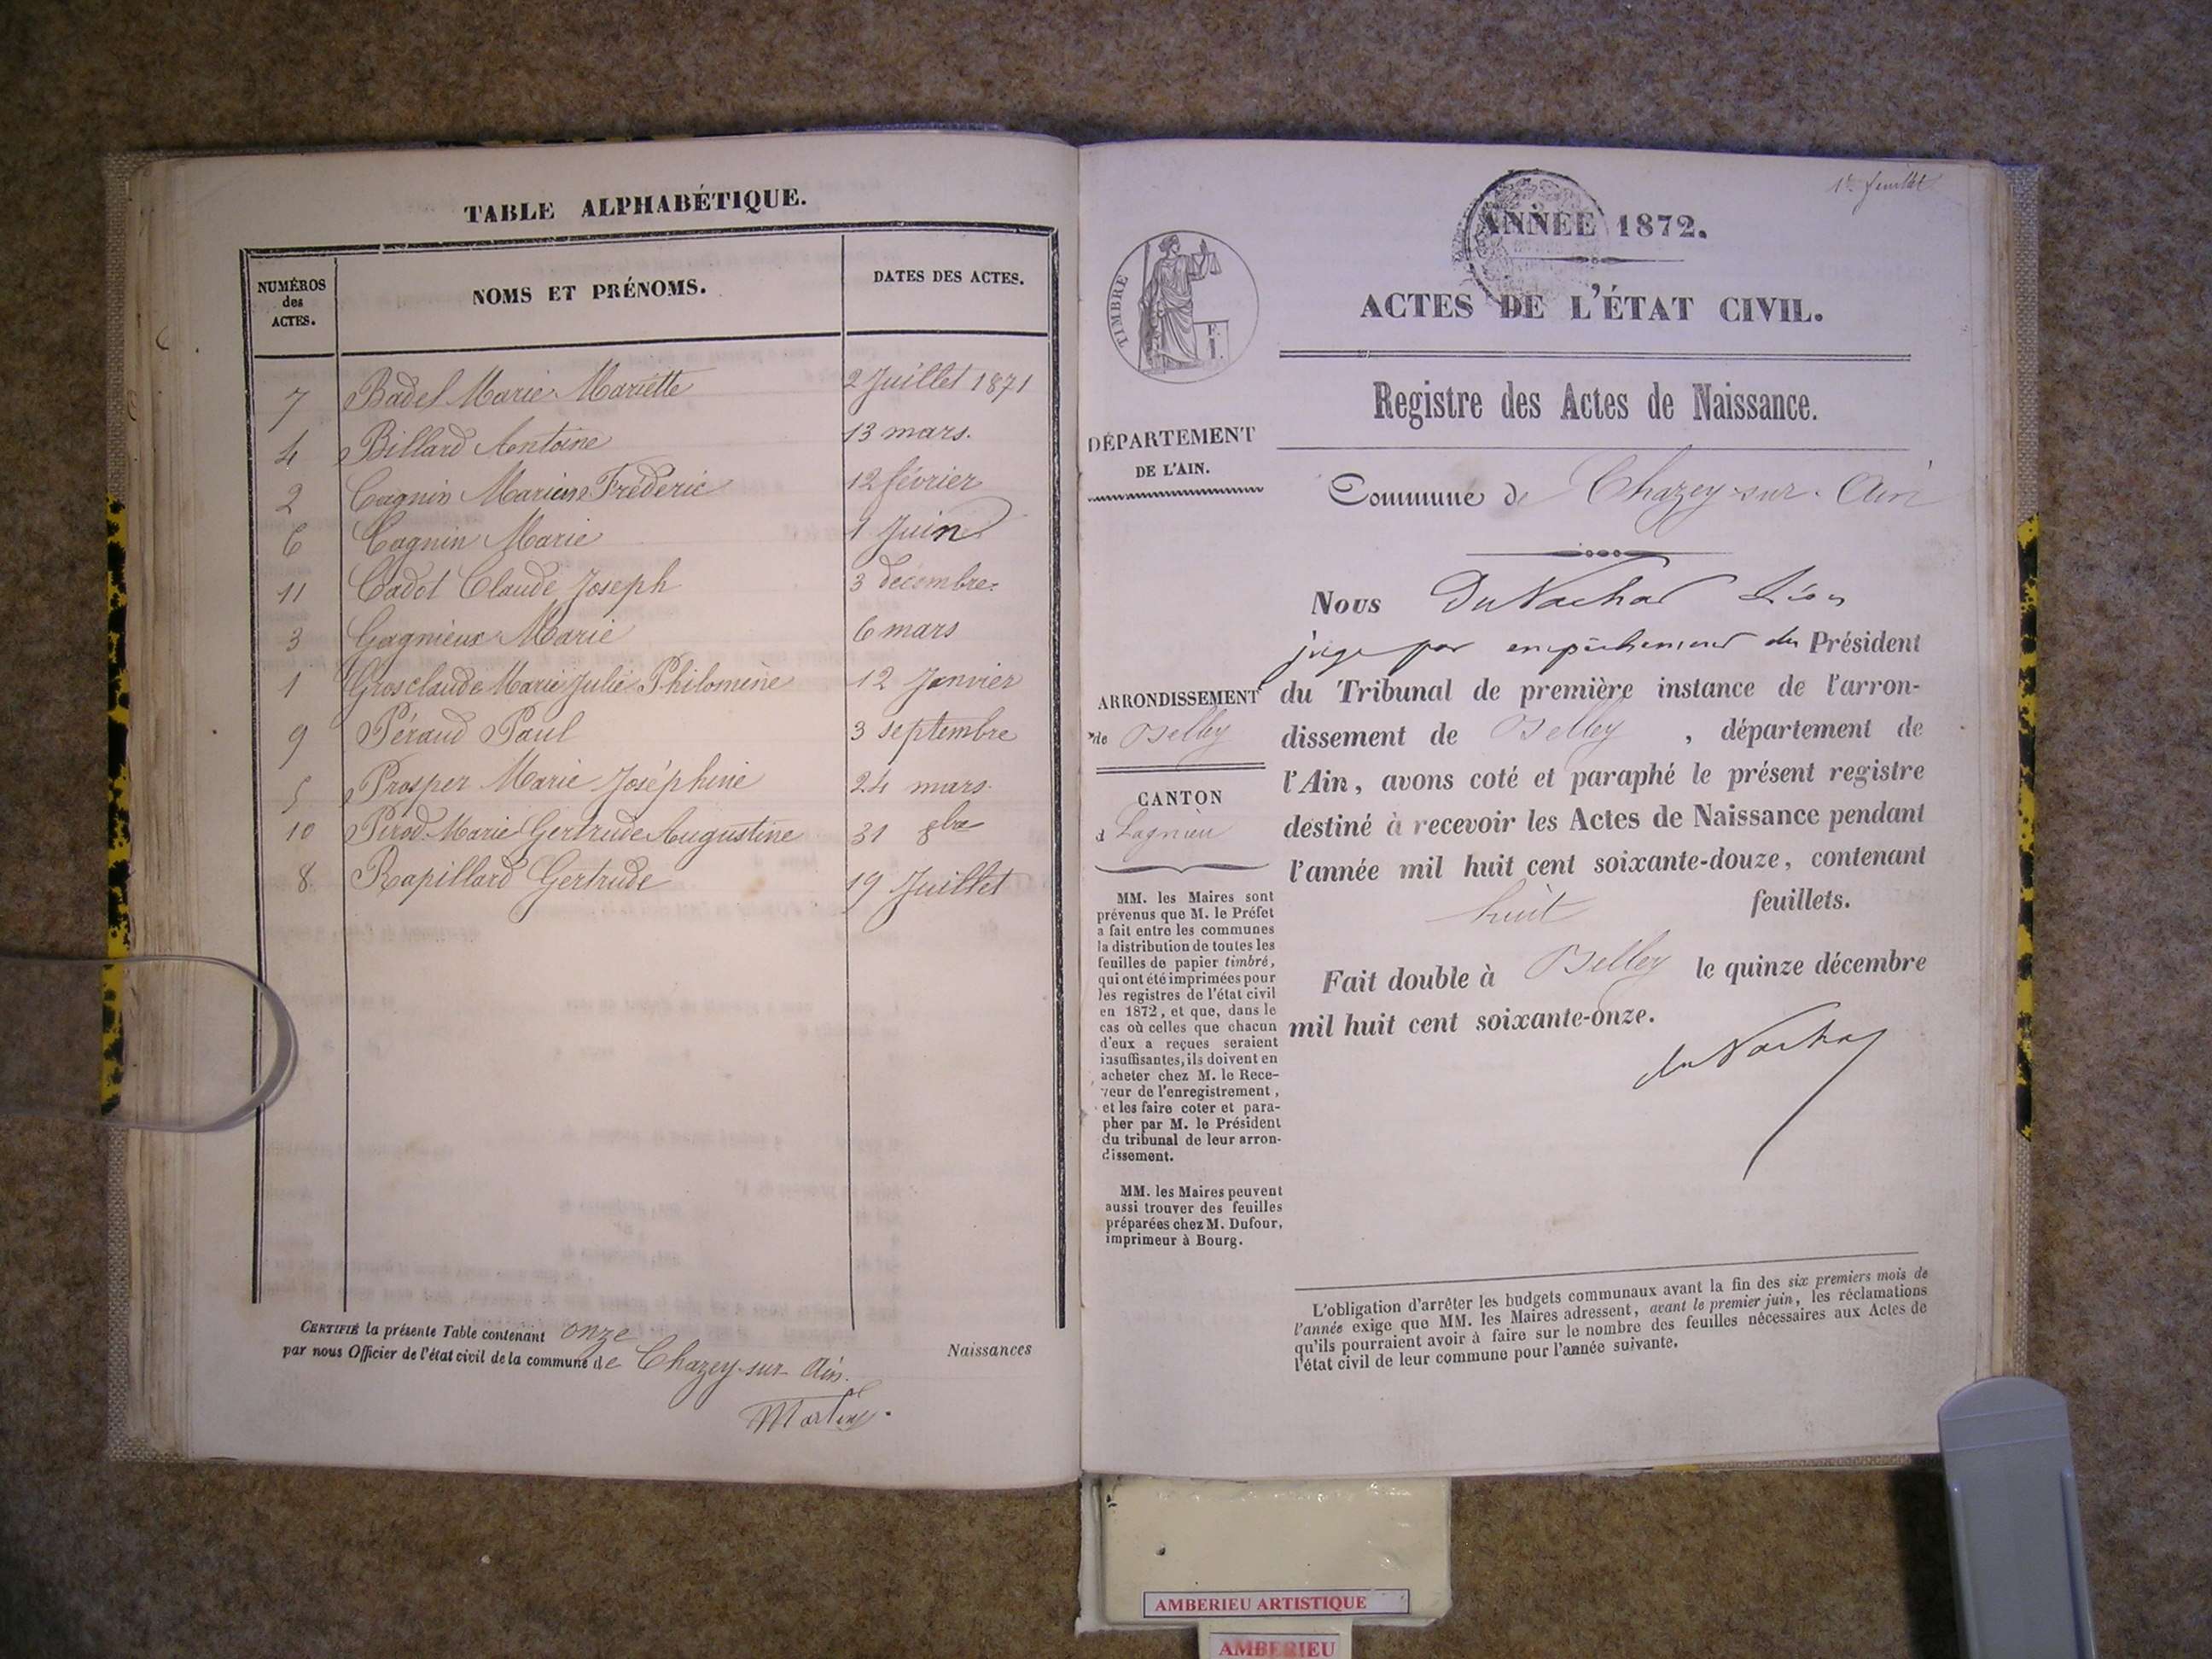 TABLE ALPHABÉTIQUE.
NUMÉROS des ACTES. NOMS ET PRÉNOMS. DATES DES ACTES.
7 Badel Marie Mariette 2 Juillet 1871
4 Billard Antoine 13 mars.
2 Cagnin Marius Fréderic 12 février
6 Cagnin Marie 1 Juin
11 Cadot Claude Joseph 3 décembre
3 Gagnieux Marie 6 mars
1 Grosclaude Marie Julie Philomène 12 Janvier
9 Péraud Paul 3 septembre
5 Prosper Marie Joséphine 24 mars
10 Pirod Marie Gertrude Augustine 31 8bre
8 Rapillard Gertrude 19 Juillet
CERTIFIÉ la présente Table contenant onze Naissances
par nous Officier de l'état civil de la commune de Chazey-sur-Ain.
Martin
1er feuillet
ANNÉE 1872.
ACTES DE L'ÉTAT CIVIL.
Registre des Actes de Naissance.
TIMBRE
DÉPARTEMENT
DE L'AIN.
Commune de Chazey-sur-Ain
Nous
juge par empêchement du Président
du Tribunal de première instance de l'arron-
dissement de Belley, département de
l'Ain, avons coté et paraphé le présent registre
destiné à recevoir les Actes de Naissance pendant
l'année mil huit cent soixante-douze, contenant
huit feuillets.
Fait double à Belley le quinze décembre
mil huit cent soixante-onze.
ARRONDISSEMENT
de Belley
CANTON
d Lagnieu
MM. les Maires sont
prévenus que M. le Préfet
a fait entre les communes
la distribution de toutes les
feuilles de papier timbré,
qui ont été imprimées pour
les registres de l'état civil
en 1872, et que, dans le
cas où celles que chacun
d'eux a reçues seraient
insuffisantes, ils doivent en
acheter chez M. le Rece-
veur de l'enregistrement,
et les faire coter et para-
pher par M. le Président
du tribunal de leur arron-
dissement.
MM. les Maires peuvent
aussi trouver des feuilles
préparées chez M. Dufour,
imprimeur à Bourg.
L'obligation d'arrêter les budgets communaux avant la fin des six premiers mois de
l'année exige que MM. les Maires adressent, avant le premier juin, les réclamations
qu'ils pourraient avoir à faire sur le nombre des feuilles nécessaires aux Actes de
l'état civil de leur commune pour l'année suivante.
AMBERIEU ARTISTIQUE
AMBERIEU